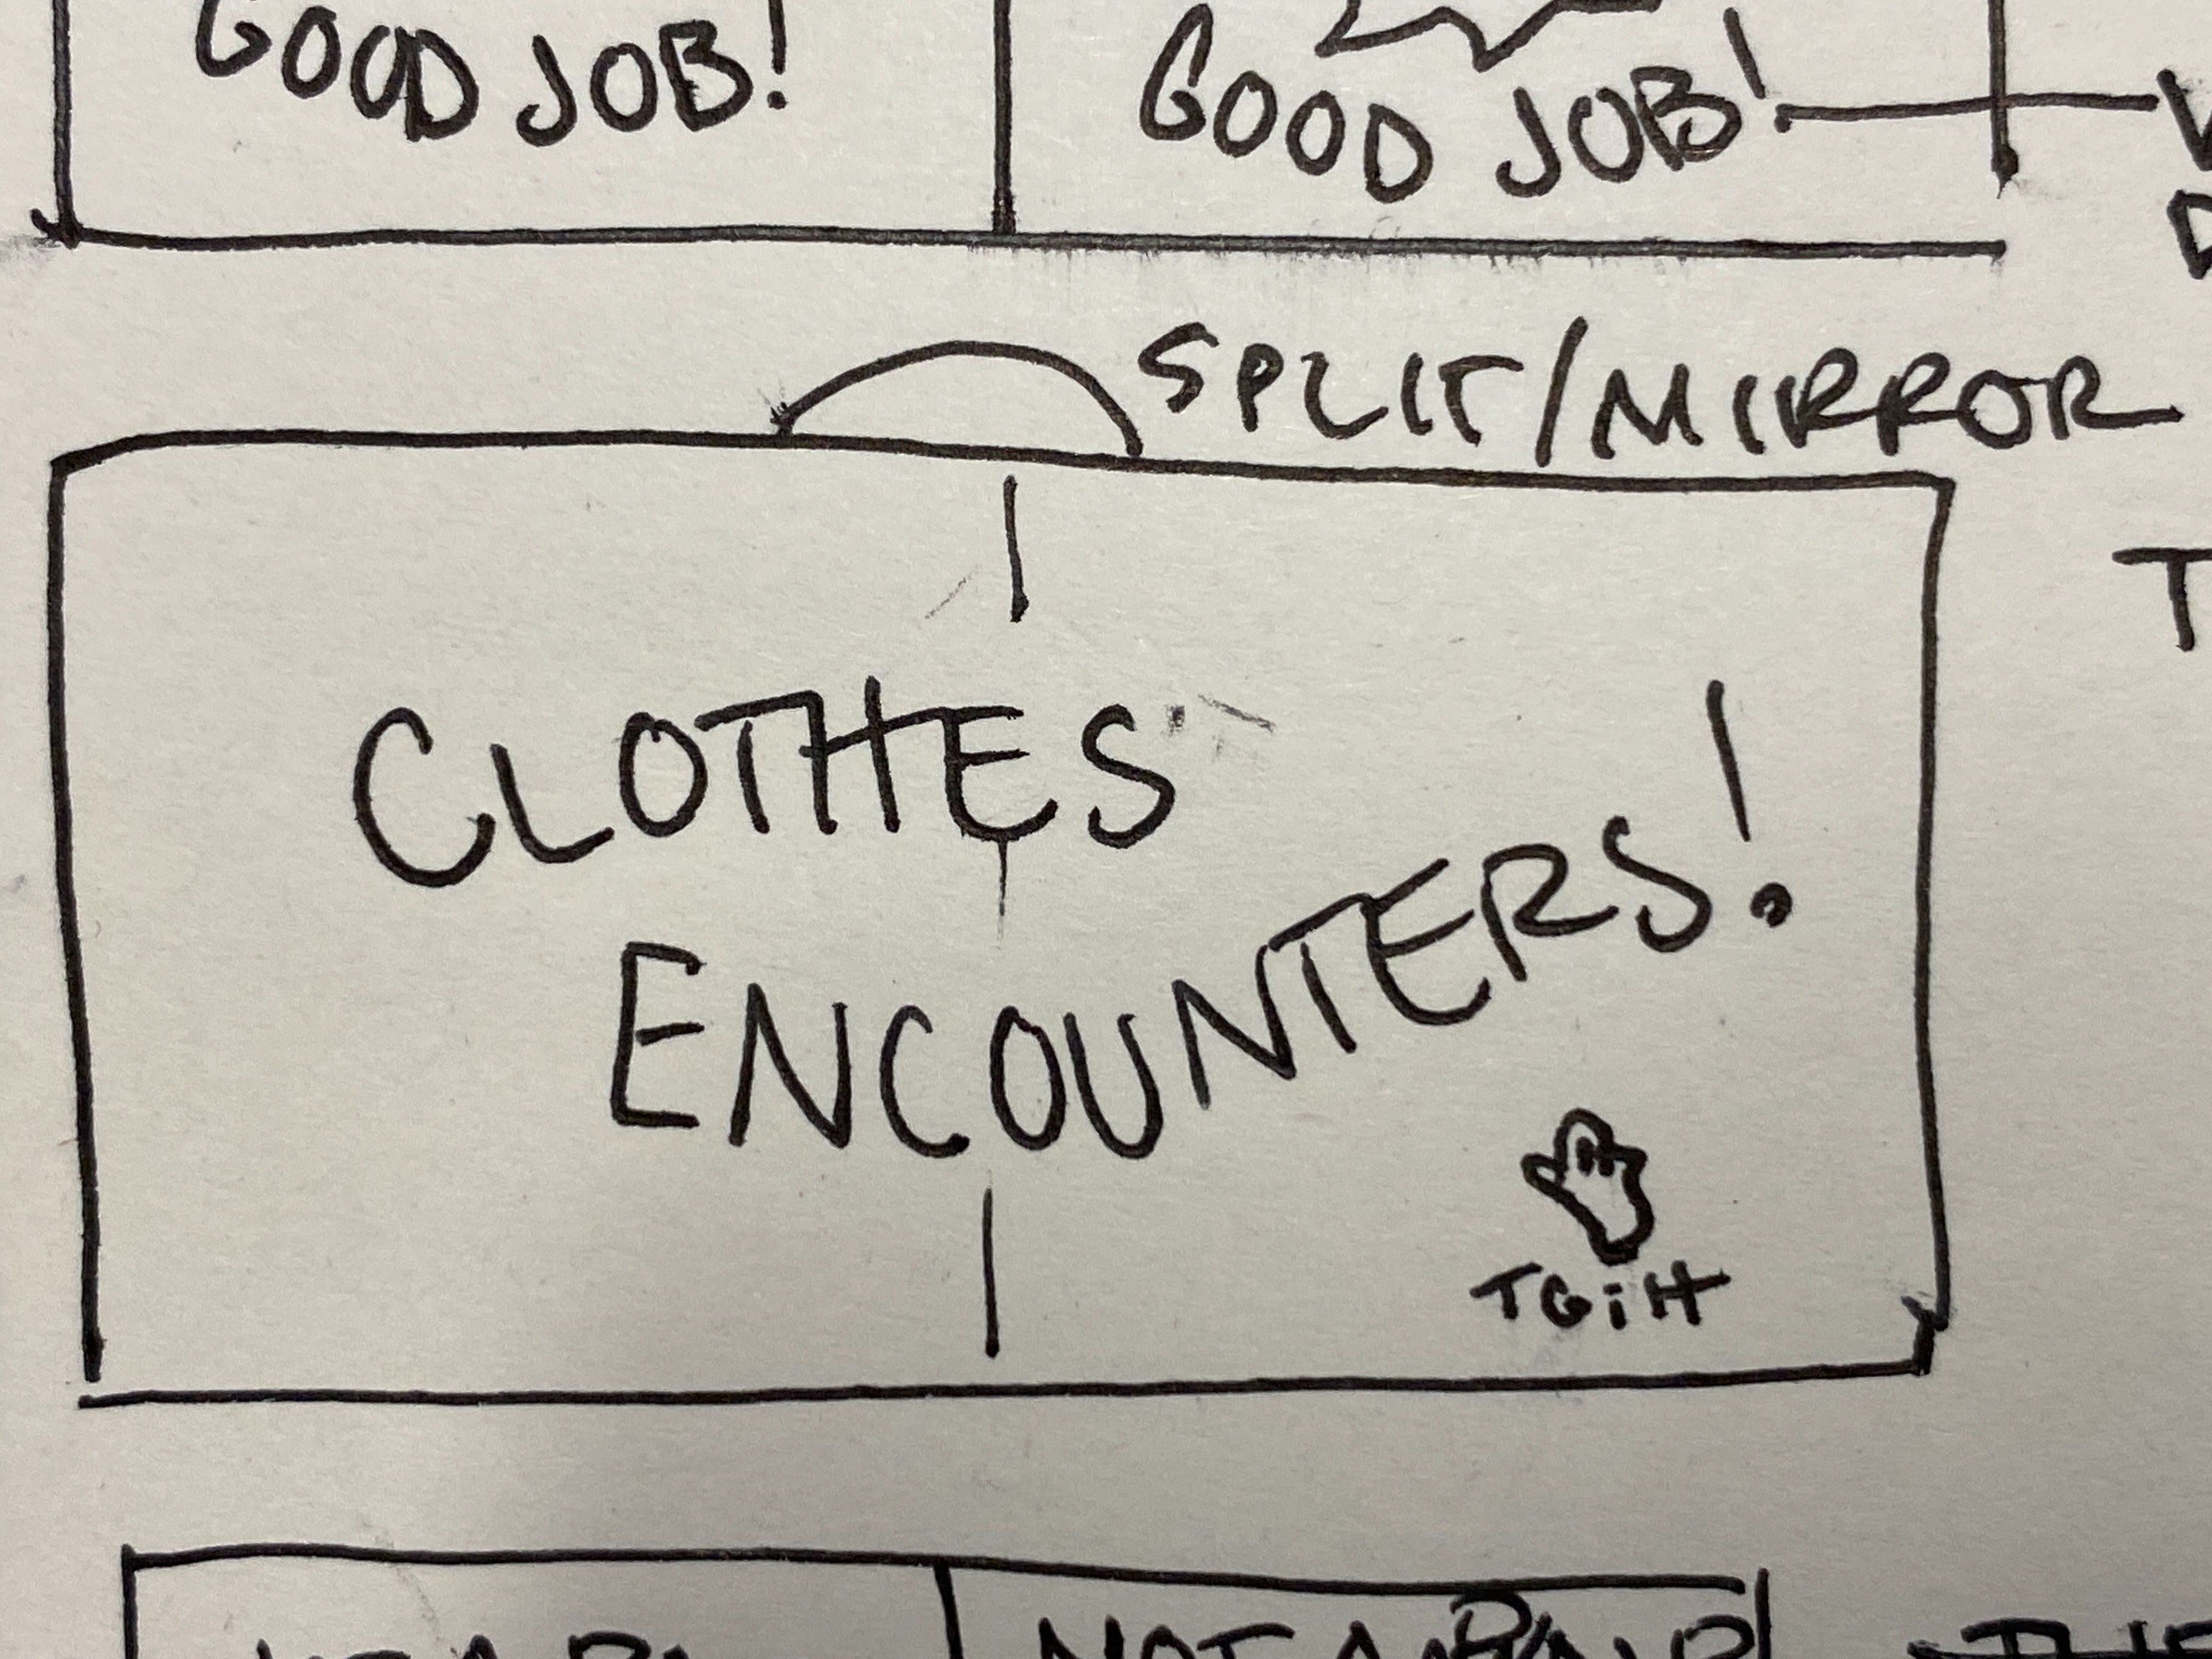 GOOD JOB!
GOOD JOB!
SPLIT/MIRROR
CLOTHES
ENCOUNTERS!
TGiH